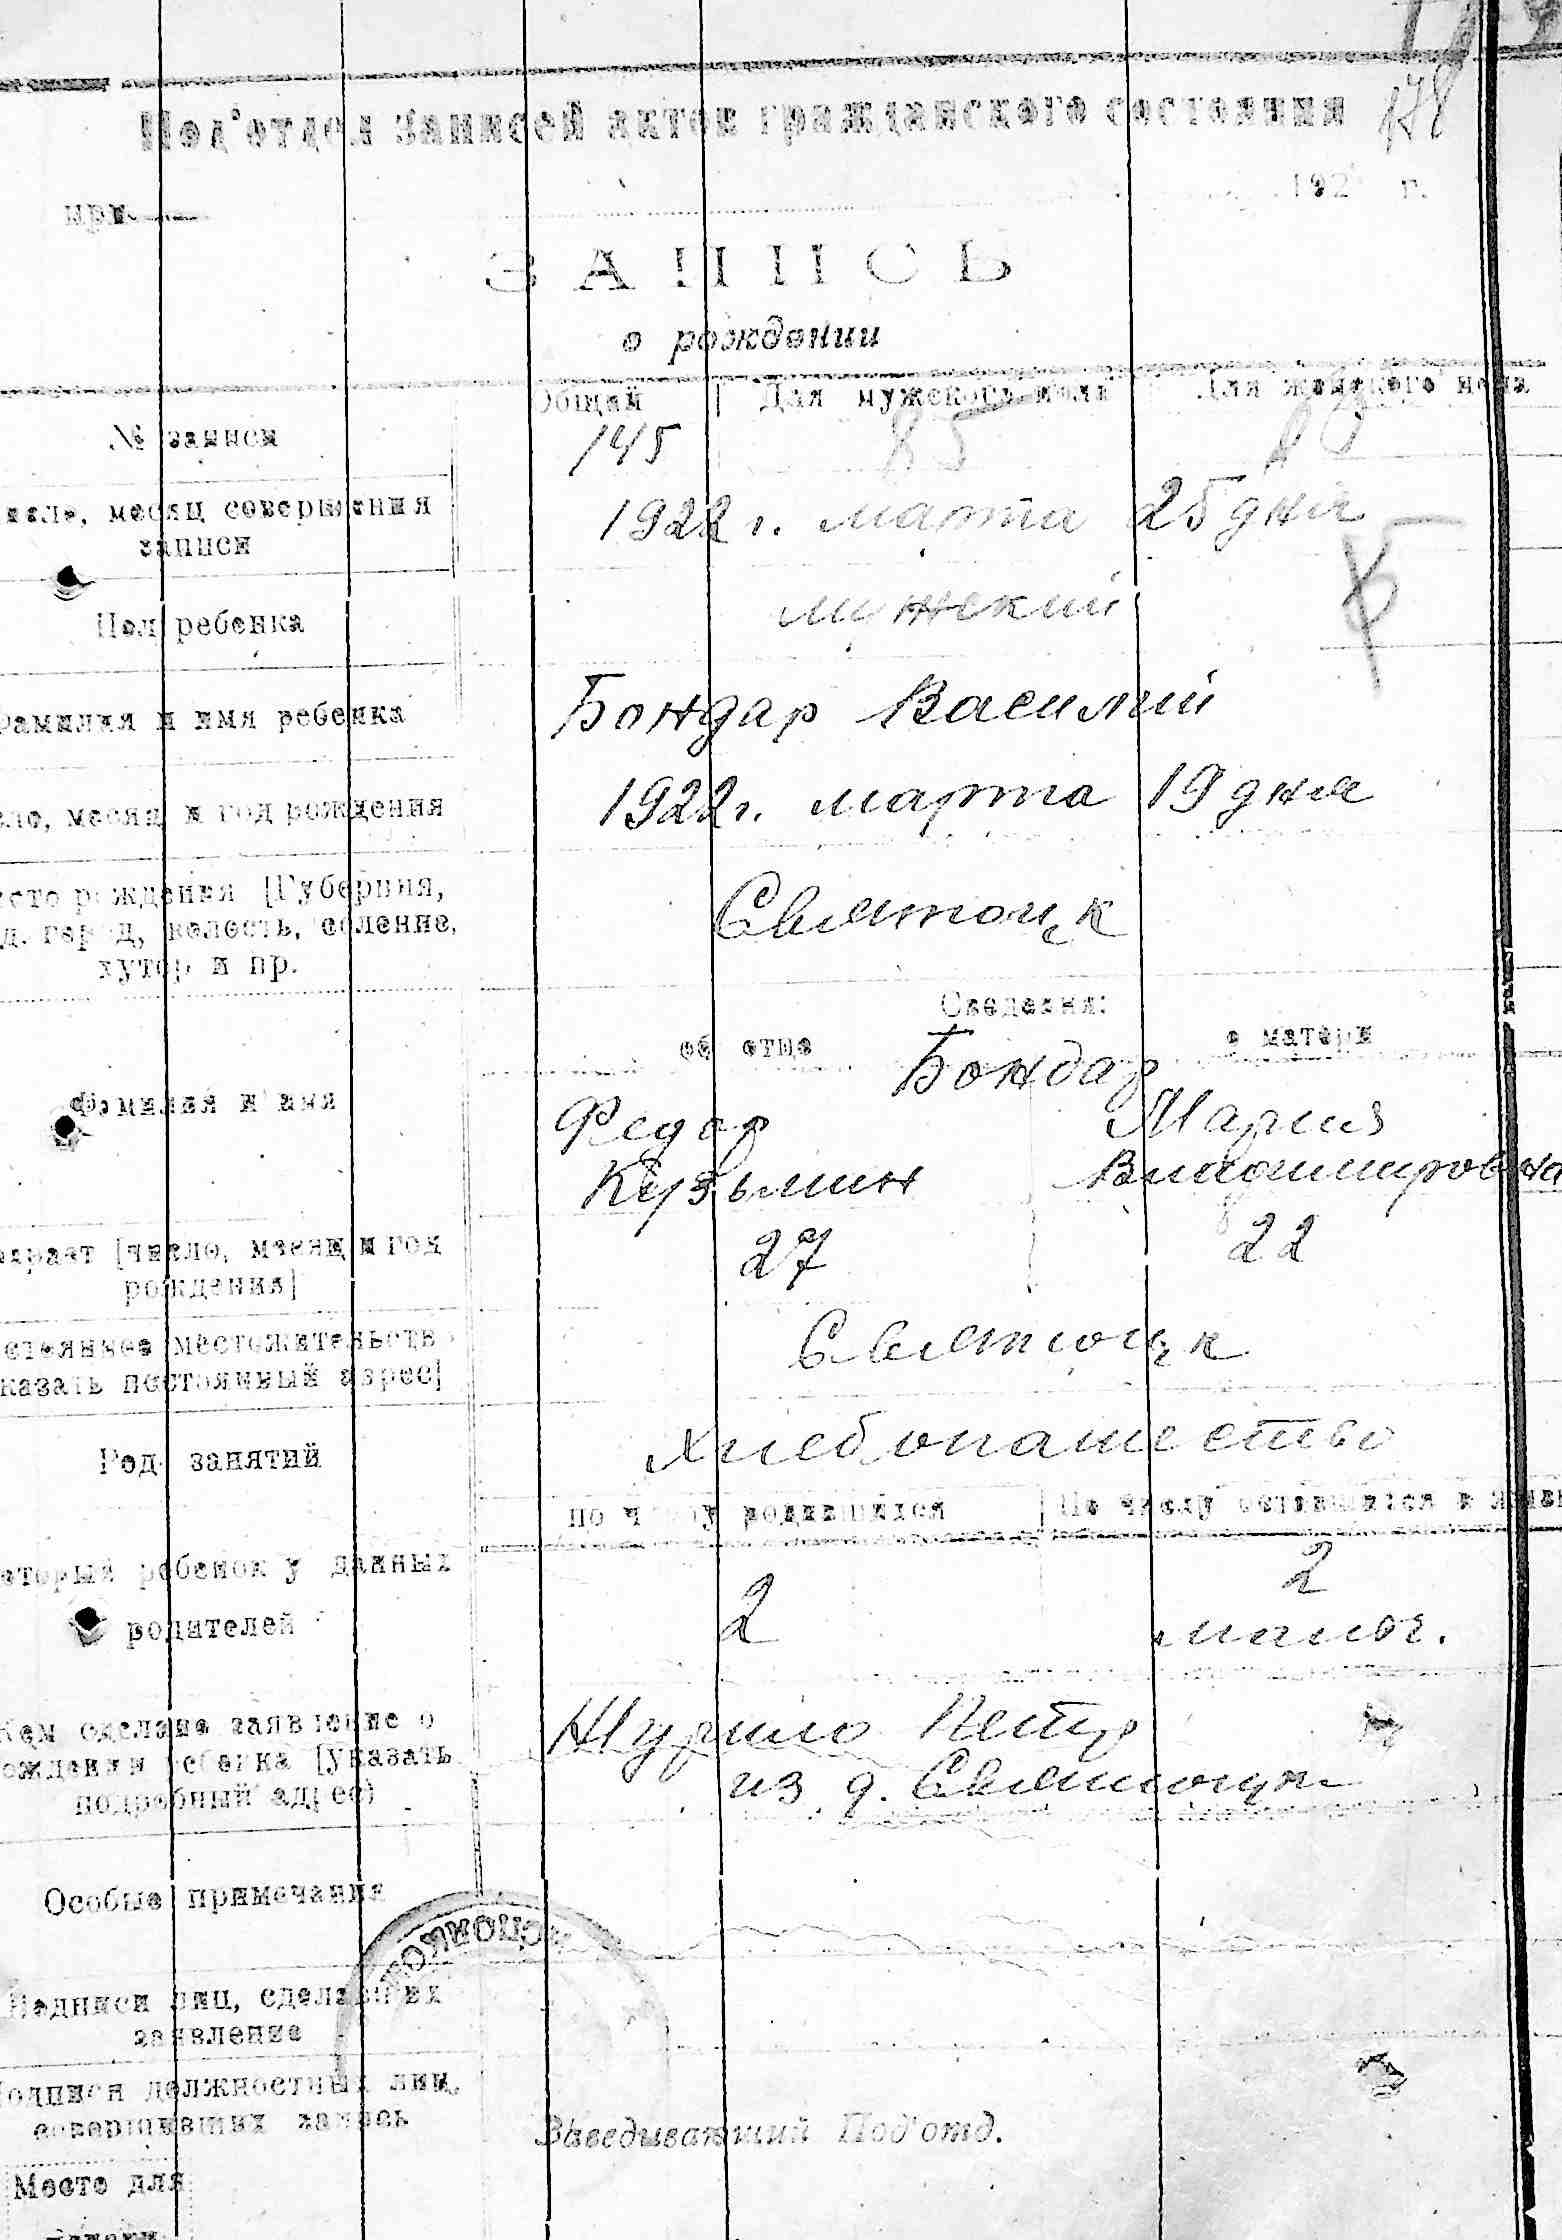 178
Под'отдел записей актов гражданского состояния
при
192 г.
ЗАПИСЬ
о рождении
Общий Для мужского пола Для женского пола
№ записи 145 85
месяц совершения
записи
1922 г. марта 25 дня
Пол ребенка мужский
Фамилия и имя ребенка Бондар Василий
месяц и год рождения 1922 г. марта 19 дня
рождения [Губерния,
город, волость, селение,
хутор и пр.
Святоцк
Сведения:
об отце о матери
Бондар
Фамилия и имя
Федор Мария
Кузьмин Владимировна
[число, месяц и год
рождения]
27 22
местожительств
постоянный адрес]
Святоцк
Род занятий Хлебопашество
по числу родившихся По числу оставшихся в
ребенок у данных
родителей
2 2
мальч.
Кем сделано заявление о
рождении ребенка [указать
подробный адрес)
Петр
из д.
Особые примечания
Подписи лиц, сделавших
заявление
Подписи должностных лиц,
совершивших запись
Заведывающий Под'отд.
Место для